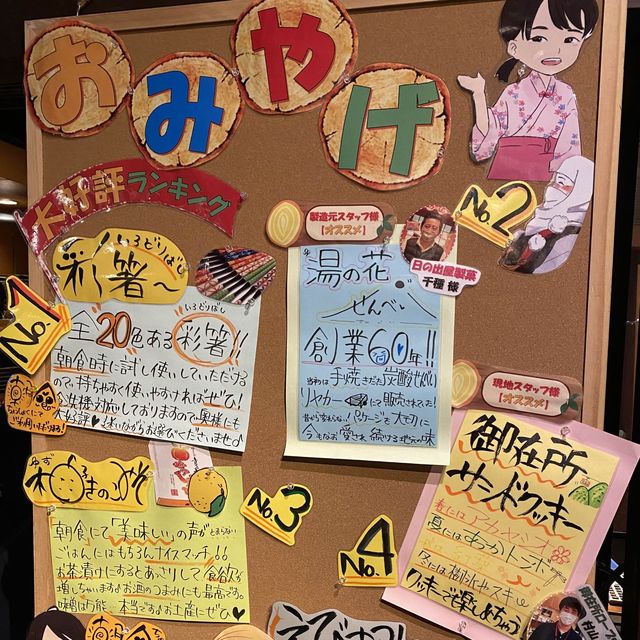 おみやげ
大好評ランキング
No.1
いろどりばし
彩箸～
いろどりばし
全20色ある彩箸!!
朝食時に試し使いしていただける
ので、持ちやすく使いやすければぜひ！
大好評♥迷いながらお選びくださいませ♪
No.2
製造元スタッフ様
【オススメ】
日の出屋製菓
千種 様
湯の花
せんべい
創業60年!!
当初は手焼きされた炭酸せんべい
リヤカー にて販売されてた！
今もなお愛され続ける地元の味
現地スタッフ様
【オススメ】
御在所
サンドクッキー
春にはアカヤシオ
夏にはあきあかトンボ
クッキーで楽しめちゃう
ゆず
No.3
朝食にて「美味しい」の声が止まらない
ごはんにはもちろんナイスマッチ!!
お茶漬けにするとあっさりして食欲が
増しちゃいます♪お酒のつまみにも最高です。
味見は可能。本当です♪お土産にぜひ♥
No.4